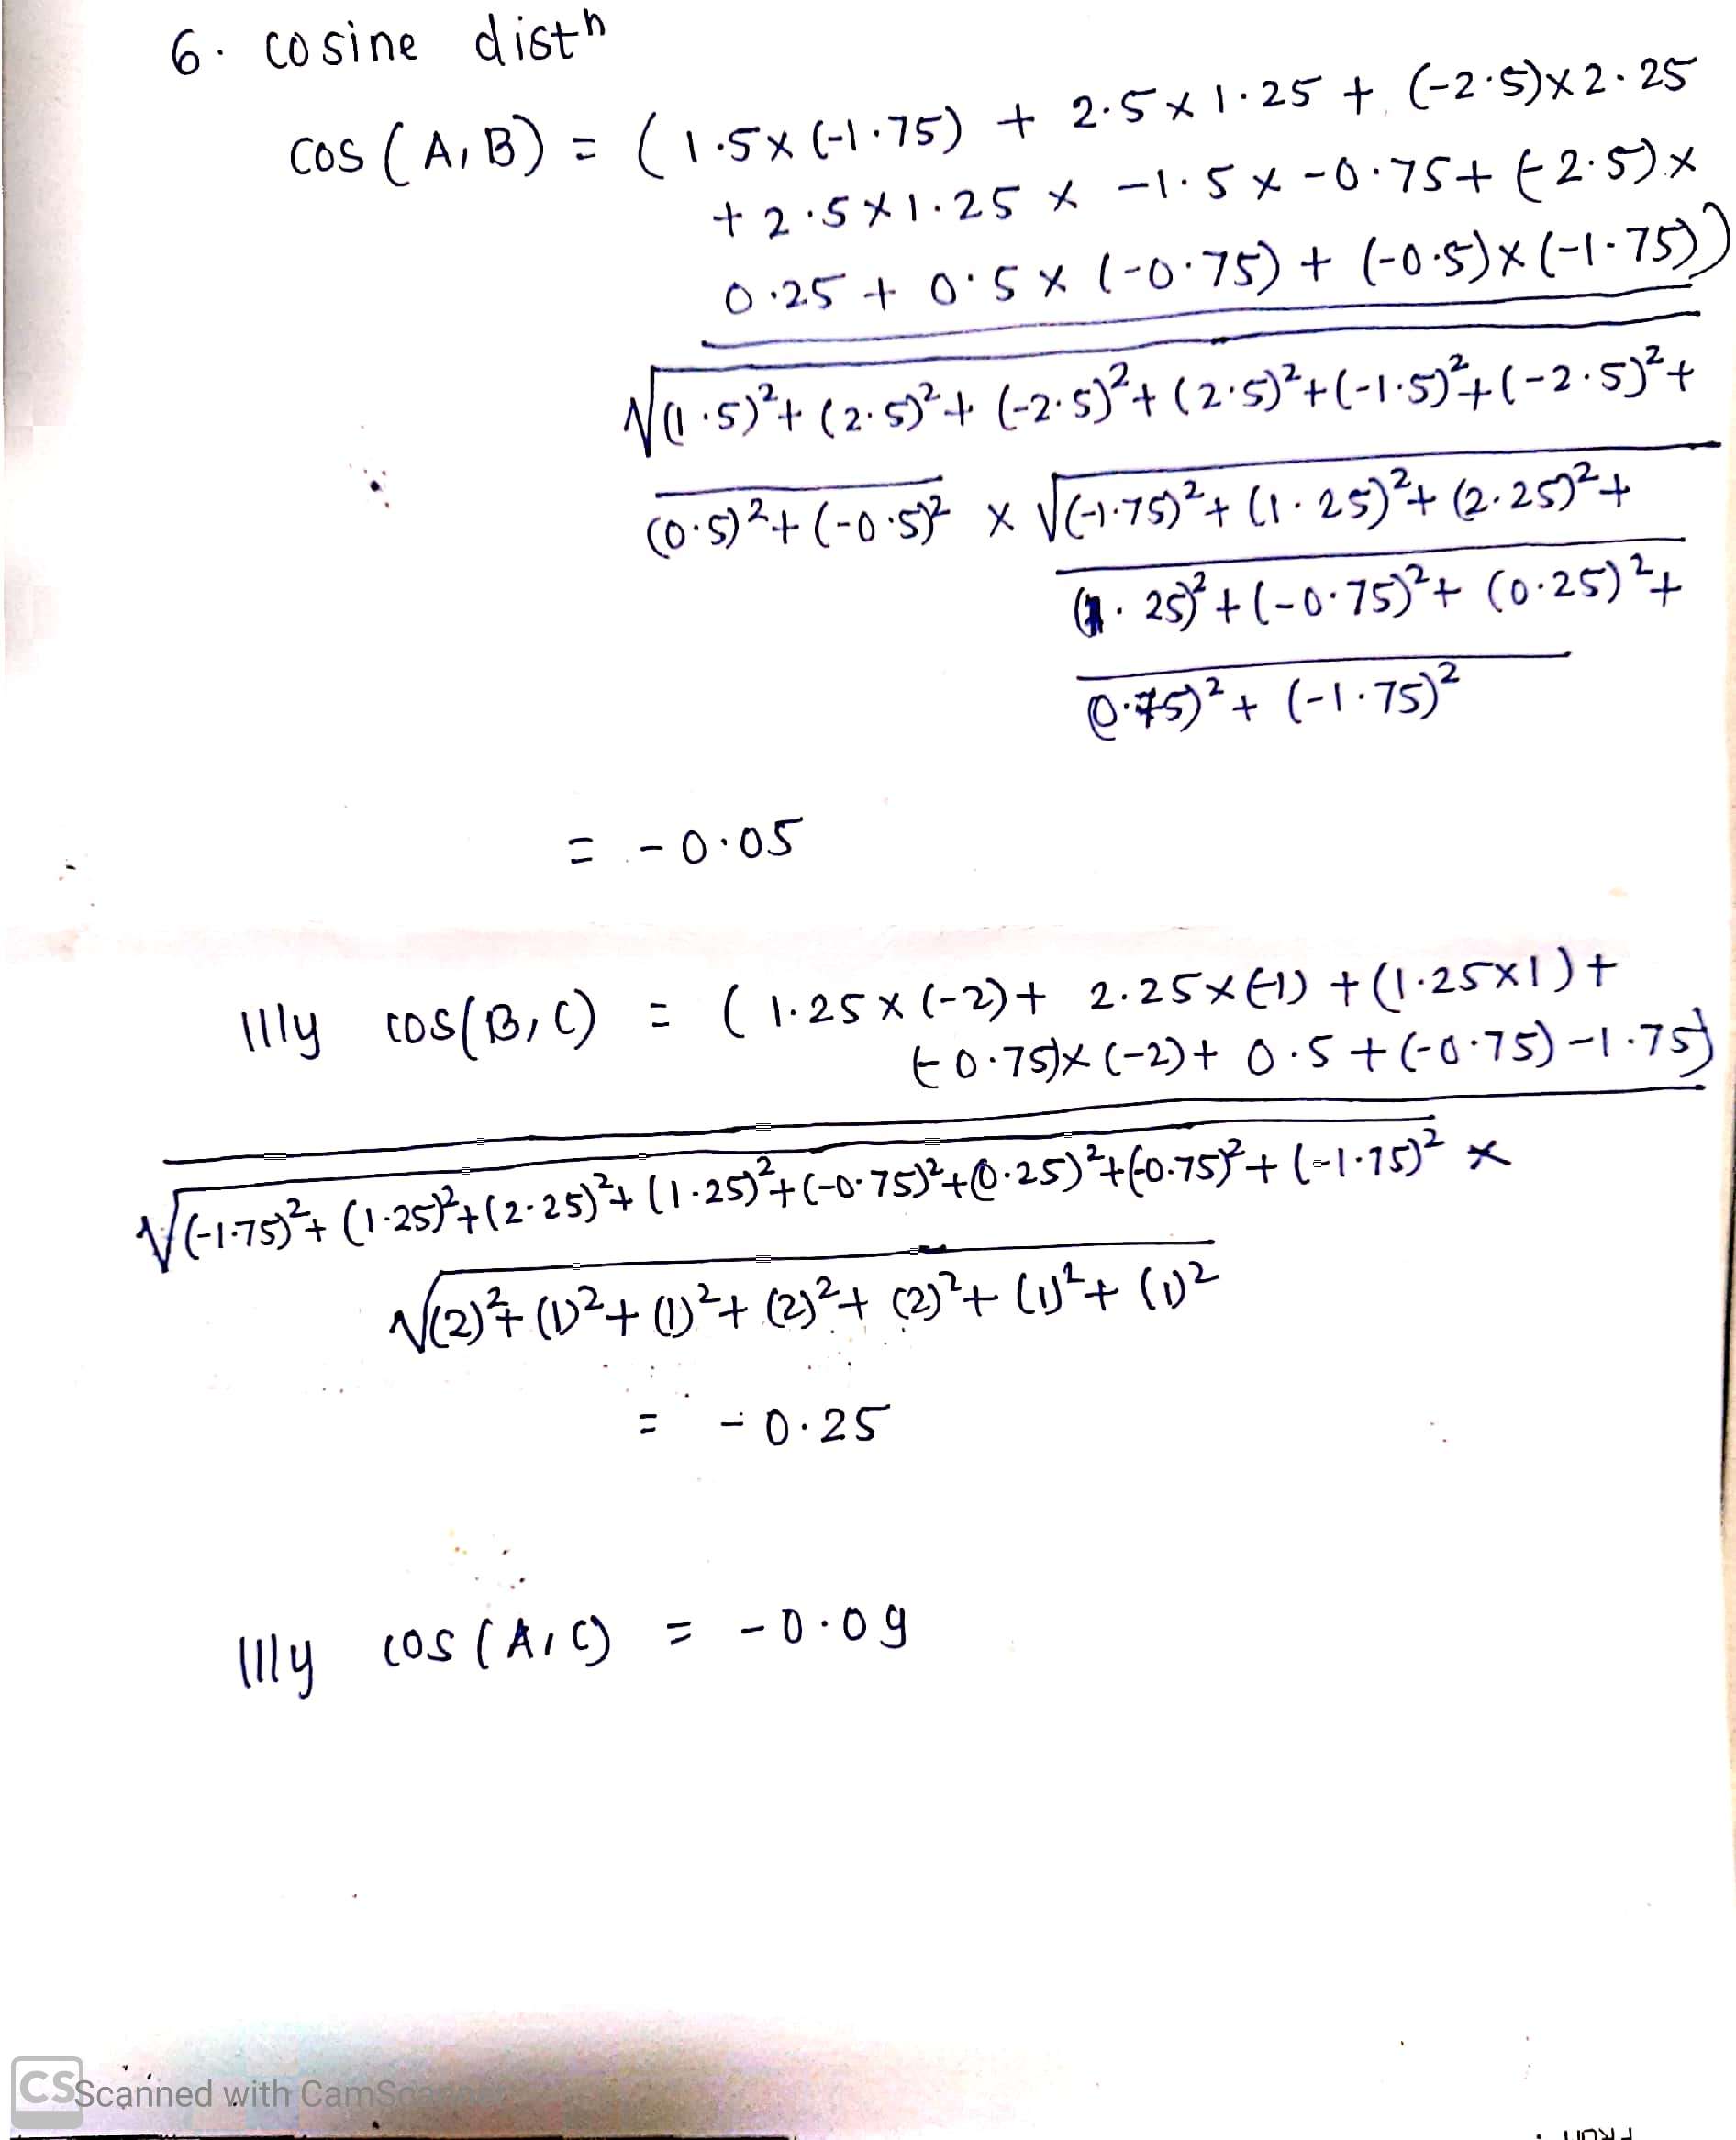 6. cosine distⁿ
cos (A, B) = ( 1.5 x (-1.75) + 2.5 x 1.25 + (-2.5) x 2.25
+ 2.5 x 1.25 x -1.5 x -0.75 + (-2.5) x
0.25 + 0.5 x (-0.75) + (-0.5) x (-1.75))
√(1.5)² + (2.5)² + (-2.5)² + (2.5)² + (-1.5)² + (-2.5)² +
(0.5)² + (-0.5)² x √(-1.75)² + (1.25)² + (2.25)² +
(1.25)² + (-0.75)² + (0.25)² +
(0.75)² + (-1.75)²
= -0.05
111ly cos(B, C) = ( 1.25 x (-2) + 2.25 x (-1) + (1.25x1) +
(-0.75) x (-2) + 0.5 + (-0.75) - 1.75)
√(-1.75)² + (1.25)² + (2.25)² + (1.25)² + (-0.75)² + (0.25)² + (-0.75)² + (-1.75)² x
√(2)² + (1)² + (1)² + (2)² + (2)² + (1)² + (1)²
= -0.25
111ly cos (A, C) = -0.09
CS Scanned with CamScanner